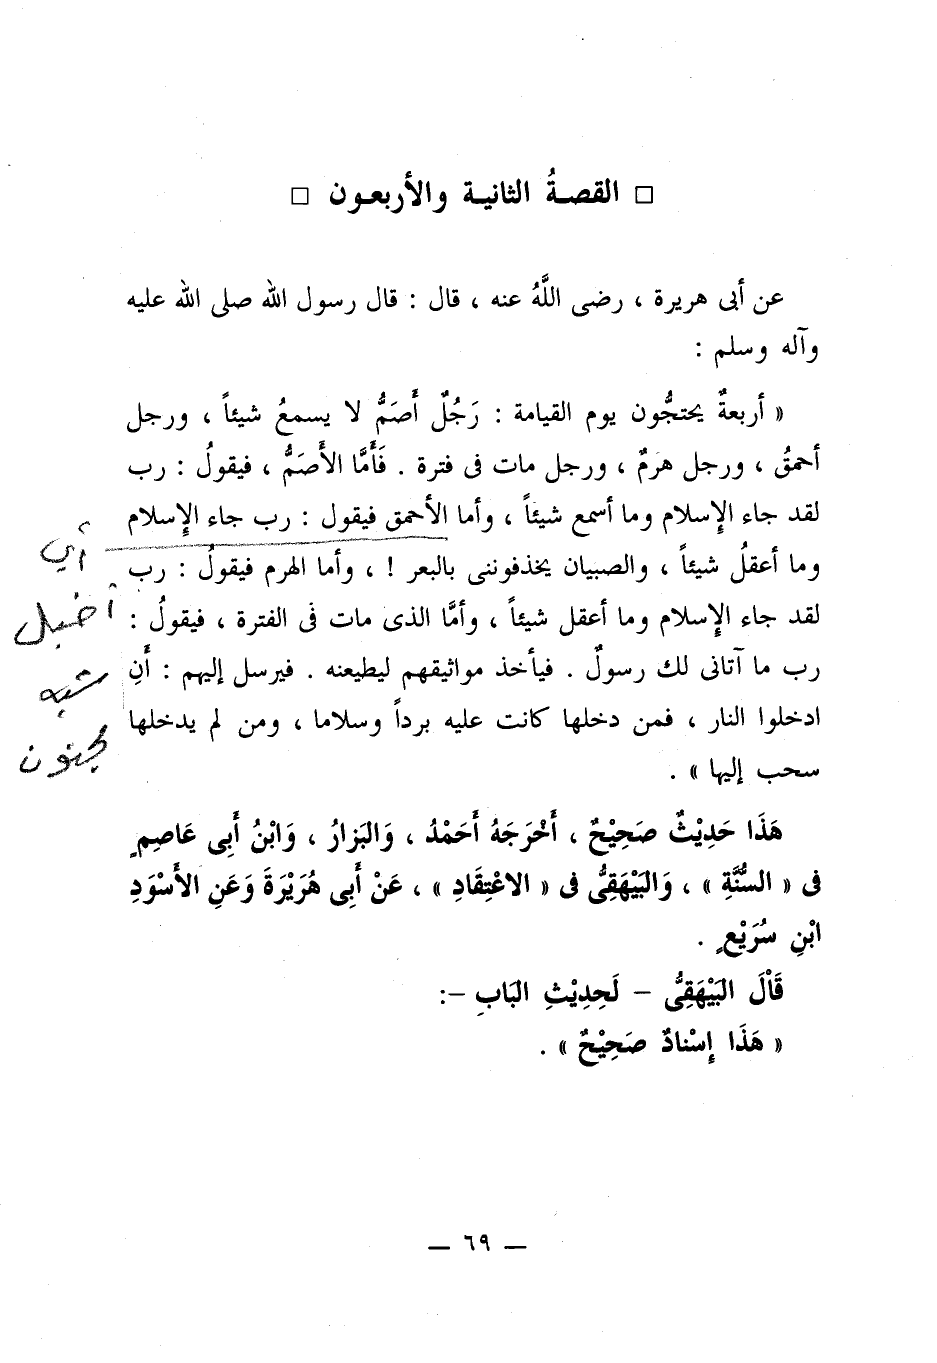 □ القصةُ الثانية والأربعون □
عن أبى هريرة ، رضى اللَّهُ عنه ، قال : قال رسول الله صلى الله عليه
وآله وسلم :
« أربعةٌ يحتجُّون يوم القيامة : رَجُلٌ أَصَمُّ لا يسمعُ شيئاً ، ورجل
أحمقُ ، ورجل هرمٌ ، ورجل مات فى فترة . فَأَمَّا الأَصَمُّ ، فيقولُ : رب
لقد جاء الإِسلام وما أسمع شيئاً ، وأما الأحمق فيقول : رب جاء الإِسلام
وما أعقلُ شيئاً ، والصبيان يخذفوننى بالبعر ! ، وأما الهرم فيقولُ : رب
لقد جاء الإِسلام وما أعقل شيئاً ، وأمَّا الذى مات فى الفترة ، فيقولُ :
رب ما آتانى لك رسولٌ . فيأخذ مواثيقهم ليطيعنه . فيرسل إليهم : أَنِ
ادخلوا النار ، فمن دخلها كانت عليه برداً وسلاما ، ومن لم يدخلها
سحب إليها » .
أي
أخبل
شبه
مجنون
هَذَا حَدِيْثٌ صَحِيْحٌ ، أَخْرَجَهُ أَحَمْدُ ، وَالبَزارُ ، وَابْنُ أَبِى عَاصِمٍ
فى « السُّنَّةِ » ، وَالبَيْهَقِىُّ فى « الاعْتِقَادِ » ، عَنْ أَبِى هُرَيْرَةَ وَعَنِ الأَسْوَدِ
ابْنِ سُرَيْعٍ .
قَالَ البَيْهَقِىُّ – لَحِدِيْثِ البَابِ –:
« هَذَا إِسْنادٌ صَحِيْحٌ » .
— ٦٩ —